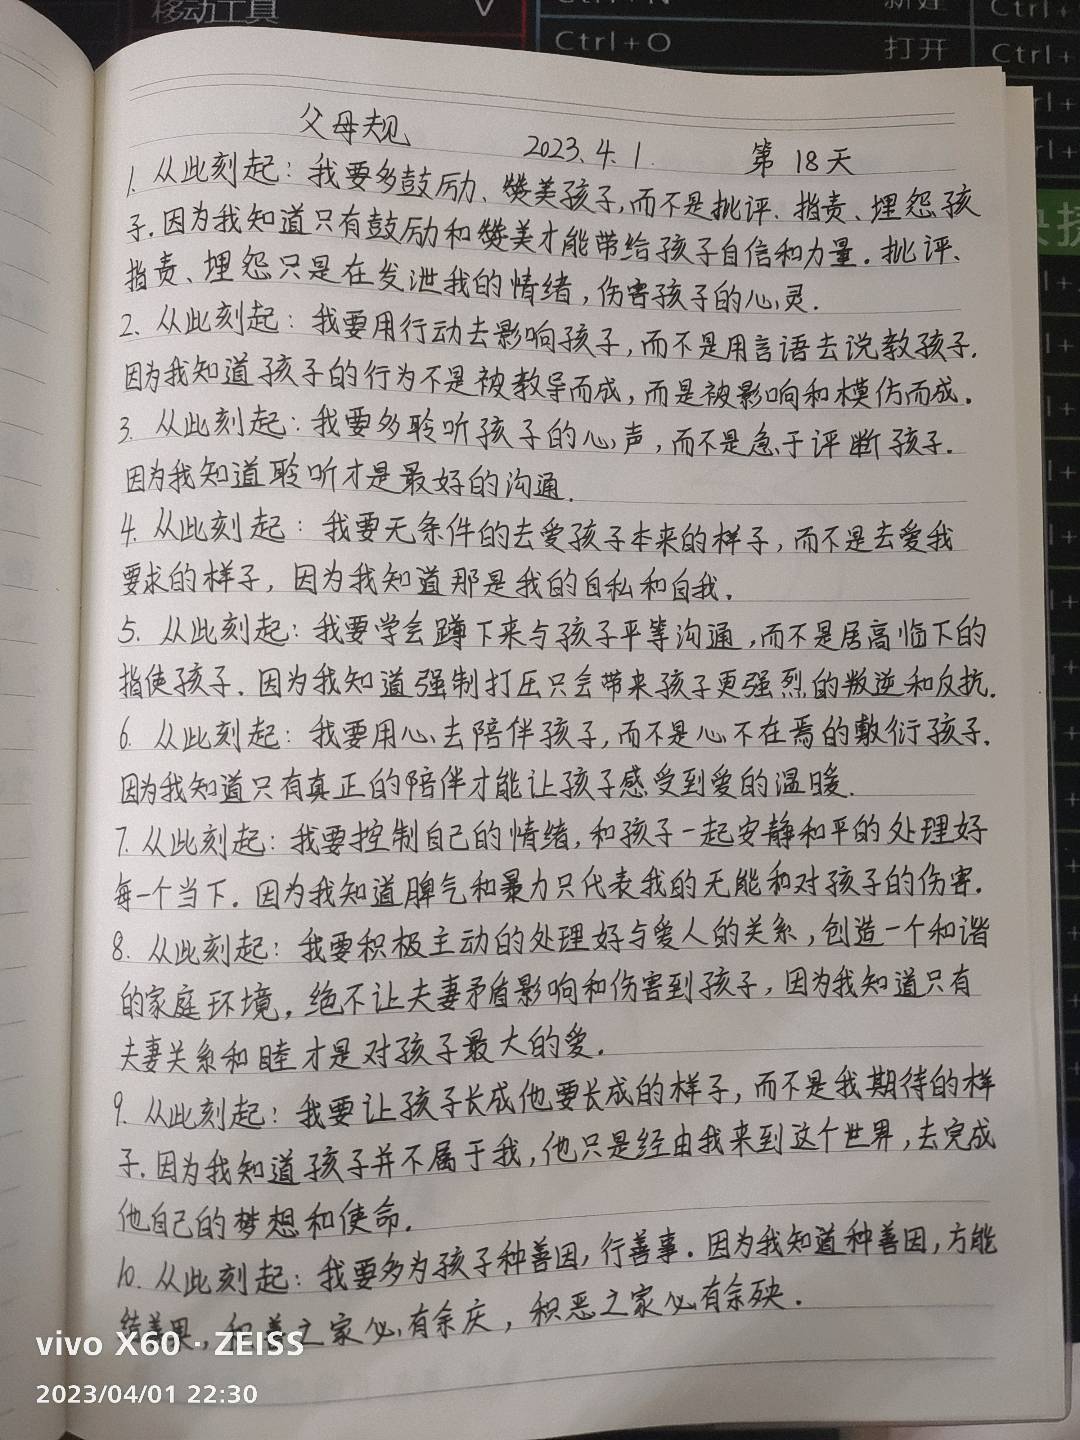 移动工具
Ctrl+N 新建 Ctrl+
Ctrl+O 打开 Ctrl+
父母规
2023.4.1. 第18天
1. 从此刻起：我要多鼓励、赞美孩子,而不是批评、指责、埋怨孩
子.因为我知道只有鼓励和赞美才能带给孩子自信和力量.批评、
指责、埋怨只是在发泄我的情绪,伤害孩子的心灵.
2. 从此刻起：我要用行动去影响孩子,而不是用言语去说教孩子.
因为我知道孩子的行为不是被教导而成,而是被影响和模仿而成.
3. 从此刻起:我要多聆听孩子的心声,而不是急于评断孩子.
因为我知道聆听才是最好的沟通.
4. 从此刻起：我要无条件的去爱孩子本来的样子,而不是去爱我
要求的样子,因为我知道那是我的自私和自我.
5. 从此刻起:我要学会蹲下来与孩子平等沟通,而不是居高临下的
指使孩子.因为我知道强制打压只会带来孩子更强烈的叛逆和反抗.
6. 从此刻起:我要用心去陪伴孩子,而不是心不在焉的敷衍孩子.
因为我知道只有真正的陪伴才能让孩子感受到爱的温暖.
7. 从此刻起:我要控制自己的情绪,和孩子一起安静和平的处理好
每一个当下.因为我知道脾气和暴力只代表我的无能和对孩子的伤害.
8. 从此刻起:我要积极主动的处理好与爱人的关系,创造一个和谐
的家庭环境,绝不让夫妻矛盾影响和伤害到孩子,因为我知道只有
夫妻关系和睦才是对孩子最大的爱.
9. 从此刻起:我要让孩子长成他要长成的样子,而不是我期待的样
子.因为我知道孩子并不属于我,他只是经由我来到这个世界,去完成
他自己的梦想和使命.
10. 从此刻起:我要多为孩子种善因,行善事.因为我知道种善因,方能
结善果,积善之家必有余庆,积恶之家必有余殃.
vivo X60 · ZEISS
2023/04/01 22:30